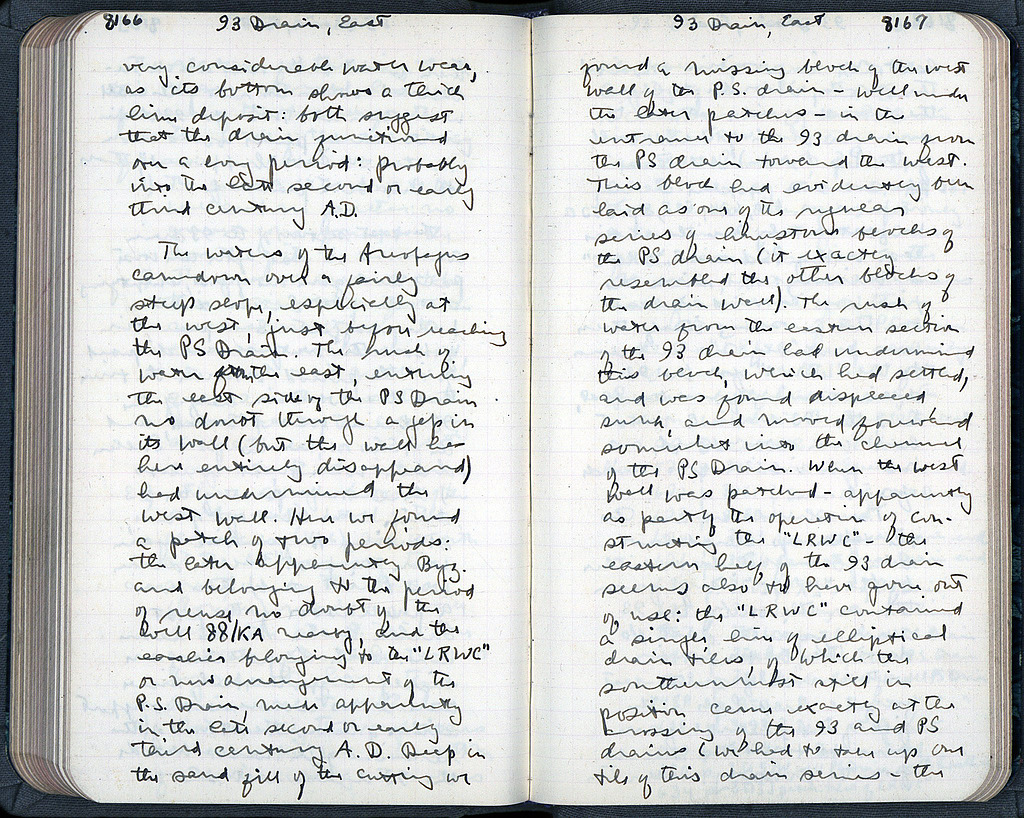 8166 93 Drain, East
very considerable water wear,
as its bottom shows a thick
lime deposit: both suggest
that the drain functioned
over a long period: probably
into the late second or early
third century A.D.
The waters of the Areopagus
came down over a fairly
steep slope, especially at
the west, just before reaching
the PS Drain. The rush of
water from the east, entering
the east side of the PS Drain
no doubt through a gap in
its wall (but the wall has
here entirely disappeared)
had undermined the
west wall. Here we found
a patch of two periods:
the later apparently Byz.
and belonging to the period
of reuse, no doubt of the
well 88/KA nearby, and the
earlier belonging to the "LRWC"
or rearrangement of the
P.S. Drain, made apparently
in the late second or early
third century A.D. Deep in
the sand fill of the cutting we
93 Drain, East 8167
found a missing block of the west
wall of the P.S. drain - well under
the later patches - in the
entrance to the 93 drain from
the PS drain toward the west.
This block had evidently been
laid as one of the regular
series of limestone blocks of
the PS drain (it exactly
resembled the other blocks of
the drain wall). The rush of
water from the eastern section
of the 93 drain had undermined
this block, which had settled,
and was found displaced
sunk, and moved forward
somewhat into the channel
of the PS Drain. When the west
wall was patched - apparently
as part of the operation of con-
structing the "LRWC" - the
eastern half of the 93 drain
seems also to have gone out
of use: the "LRWC" contained
a single line of elliptical
drain tiles, of which the
southernmost still in
position came exactly at the
crossing of the 93 and PS
drains (we had to take up one
tile of this drain series - the